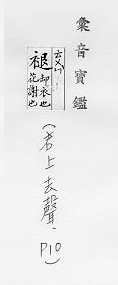 彙音寶鑑
褪 卸衣也
花謝也
(君上去聲.
P10)